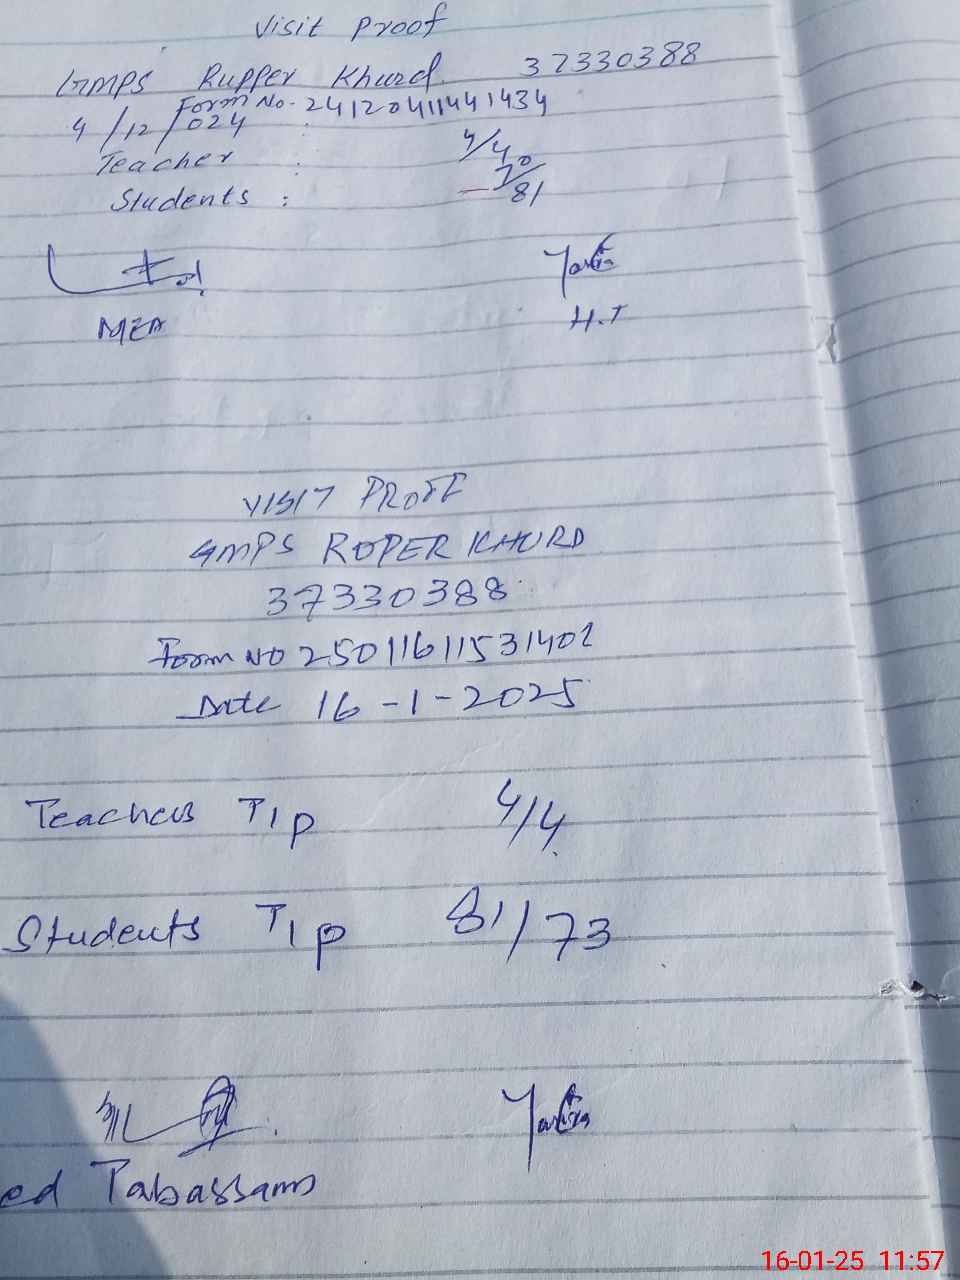 Visit Proof
GMPS Rupper Khurd 37330388
Form No. 24120411441434
4/12/024
Teacher : 4/4
Students : 70/81
MEA H.T
VISIT PROFF
GMPS ROPER KHURD
37330388
Form NO 25011611531402
Date 16-1-2025
Teachers T/P 4/4
Students T/P 81/73
ed Tabassam
16-01-25 11:57